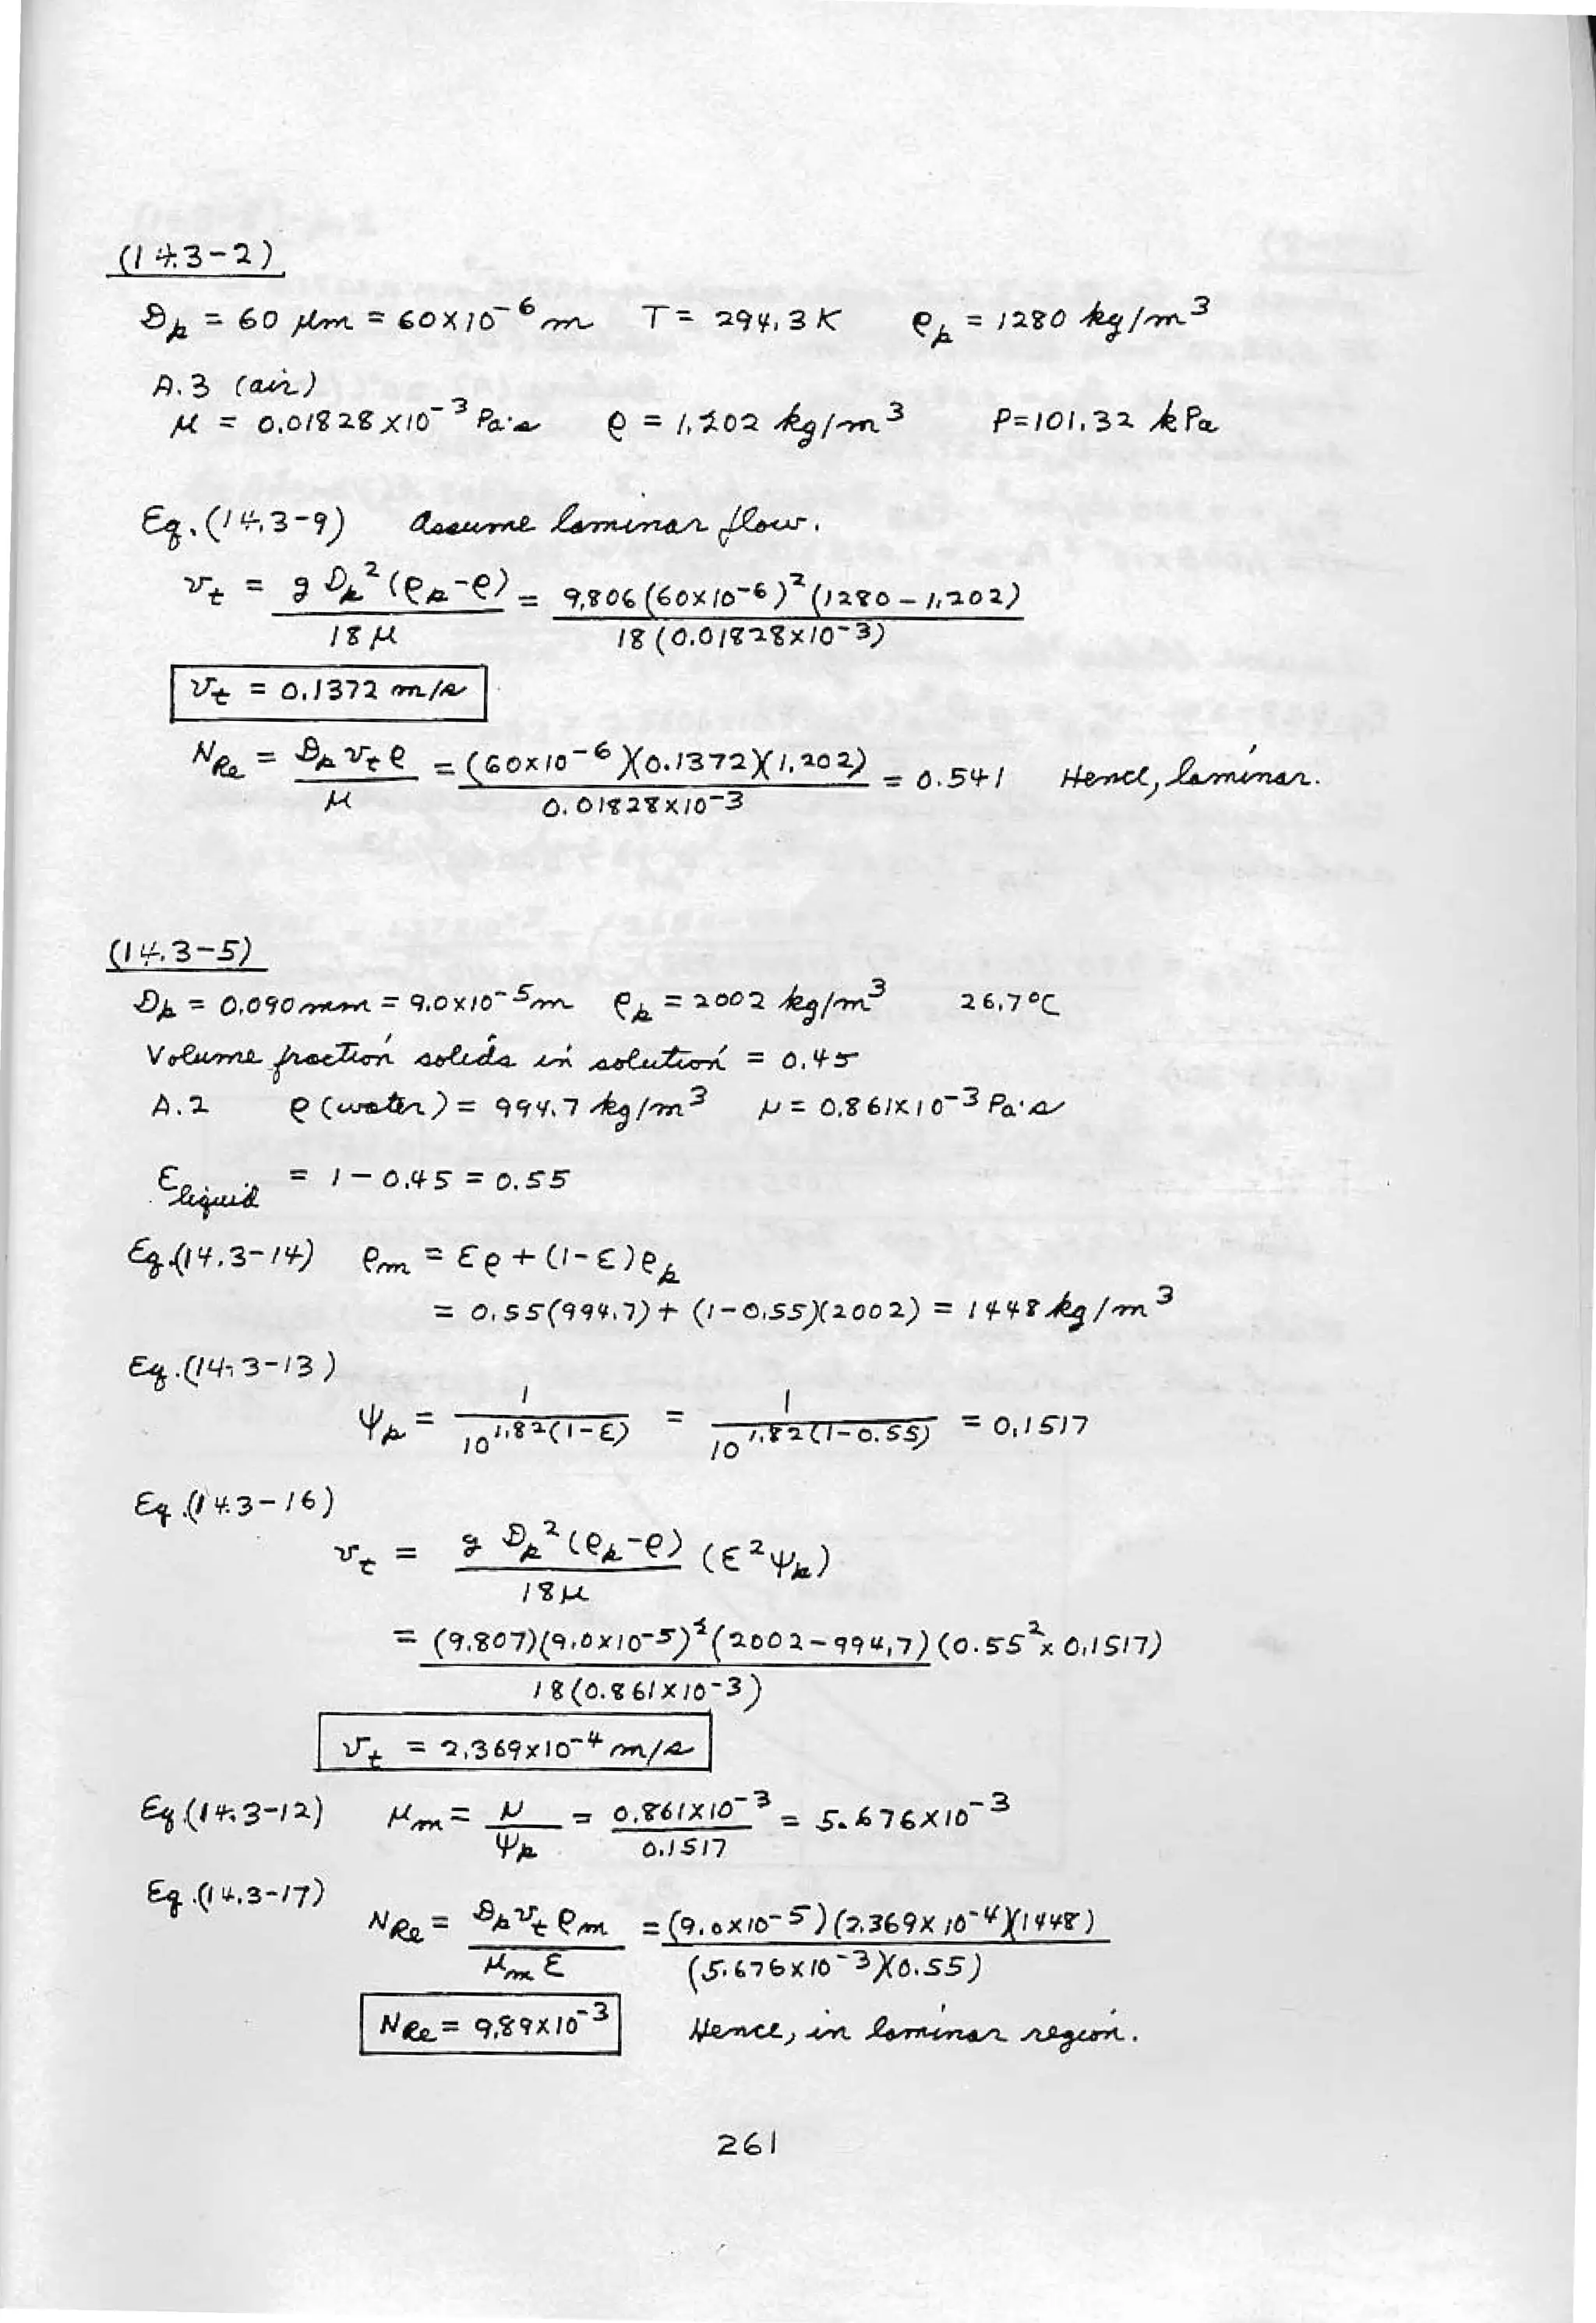 (14.3-2)
Dp = 60 μm = 60x10^-6 m T = 294.3 K ρp = 1280 kg/m^3
A.3 (air)
μ = 0.01828x10^-3 Pa·s ρ = 1.202 kg/m^3 P=101.32 kPa
Eq. (14.3-9) Assume laminar flow.
vt = g Dp^2 (ρp-ρ) / 18μ = 9.806 (60x10^-6)^2 (1280 - 1.202) / 18 (0.01828x10^-3)
vt = 0.1372 m/s
NRe = Dp vt ρ / μ = (60x10^-6)(0.1372)(1.202) / 0.01828x10^-3 = 0.541 Hence, laminar.
(14.3-5)
Dp = 0.090 mm = 9.0x10^-5 m ρp = 2002 kg/m^3 26.7 °C
Volume fraction solids in solution = 0.45
A.2 ρ (water) = 994.7 kg/m^3 μ = 0.861x10^-3 Pa·s
ε liquid = 1 - 0.45 = 0.55
Eq. (14.3-14) ρm = ερ + (1-ε)ρp
= 0.55(994.7) + (1-0.55)(2002) = 1448 kg/m^3
Eq. (14.3-13)
ψp = 1 / 10^1.82(1-ε) = 1 / 10^1.82(1-0.55) = 0.1517
Eq. (14.3-16)
vt = g Dp^2 (ρp-ρ) / 18μ (ε^2 ψp)
= (9.807)(9.0x10^-5)^2 (2002-994.7) (0.55^2 x 0.1517) / 18(0.861x10^-3)
vt = 2.369x10^-4 m/s
Eq. (14.3-12) μm = μ / ψp = 0.861x10^-3 / 0.1517 = 5.676x10^-3
Eq. (14.3-17)
NRe = Dp vt ρm / μm ε = (9.0x10^-5)(2.369x10^-4)(1448) / (5.676x10^-3)(0.55)
NRe = 9.89x10^-3 Hence, in laminar region.
261